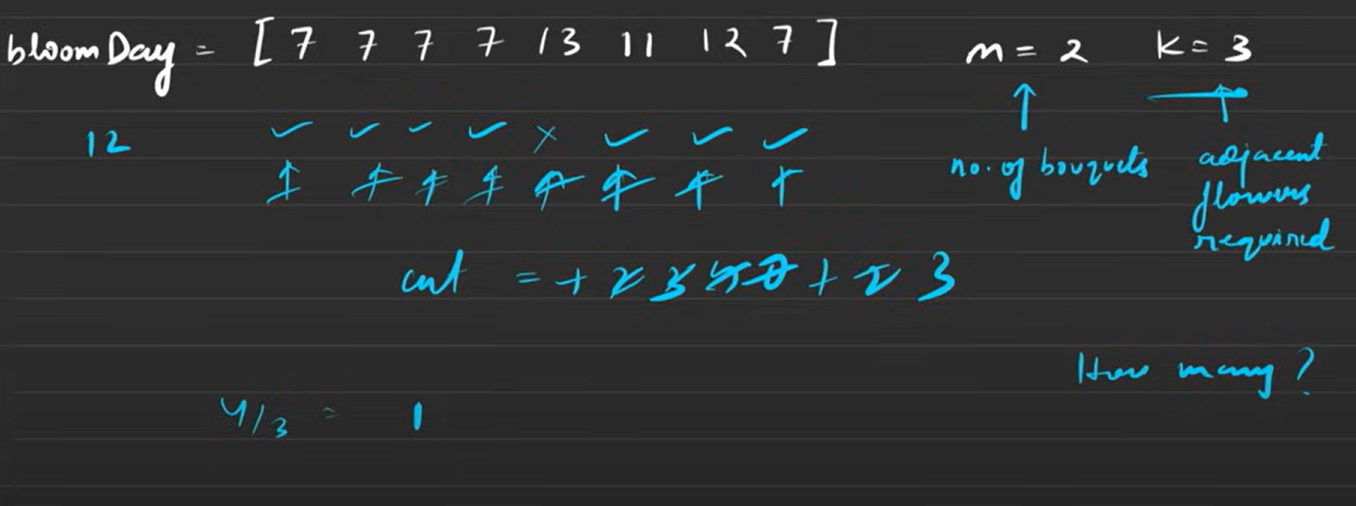 bloomDay = [ 7 7 7 7 13 11 12 7 ] m = 2 k = 3
12 ✓ ✓ ✓ ✓ × ✓ ✓ ✓
no. of bouquets adjacent
flowers
required
cnt = 1 2 3 4 0 1 2 3
How many ?
4/3 = 1